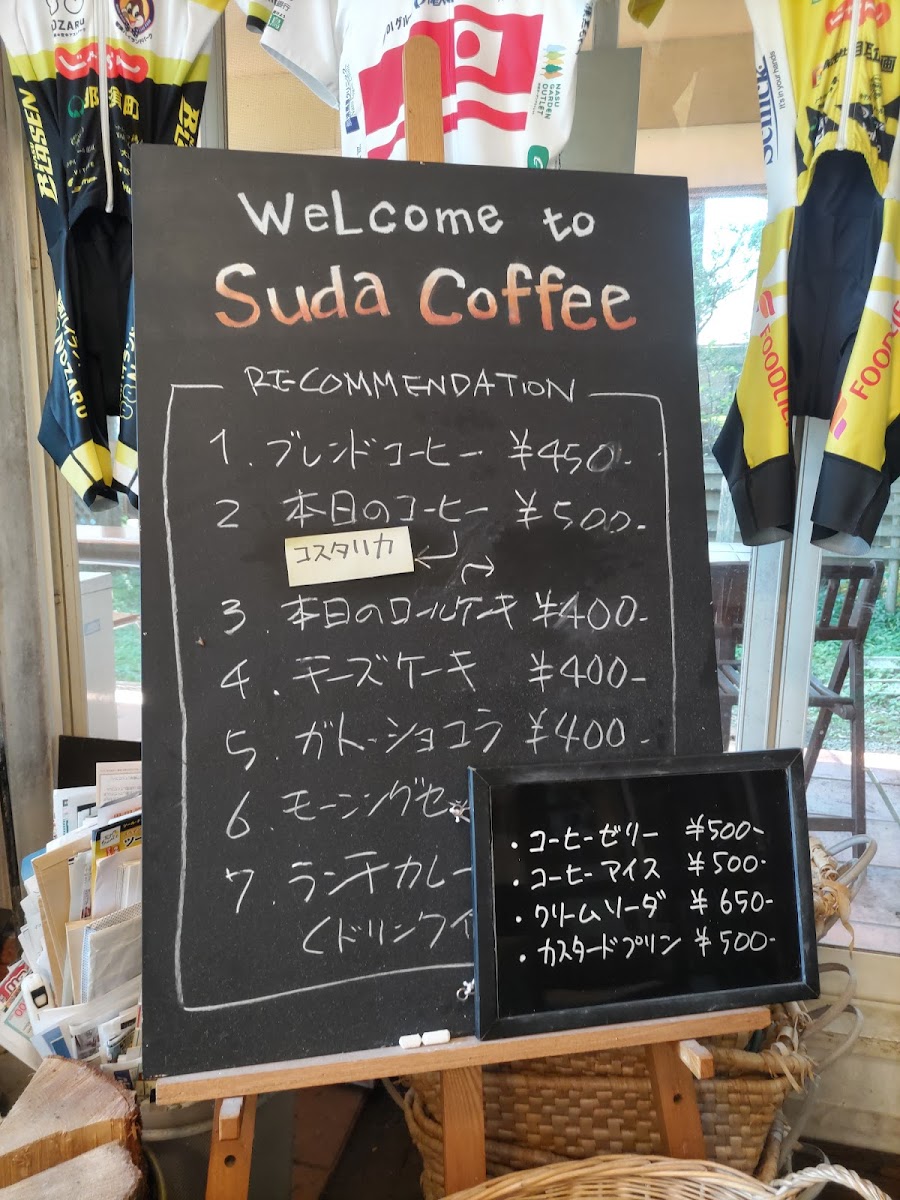 じゃらん
那須町
BLÜSEN
NASU GARDEN OUTLET
Scritck
FOODLIE
WeLcome to
Suda Coffee
RECOMMENDATION
1. ブレンドコーヒー ¥450-
2 本日のコーヒー ¥500-
コスタリカ
3. 本日のロールケーキ ¥400-
4. チーズケーキ ¥400-
5. ガトーショコラ ¥400-
6. モーニングセ
7. ランチカレー
<ドリンク
・コーヒーゼリー ¥500-
・コーヒーアイス ¥500-
・クリームソーダ ¥650-
・カスタードプリン ¥500-